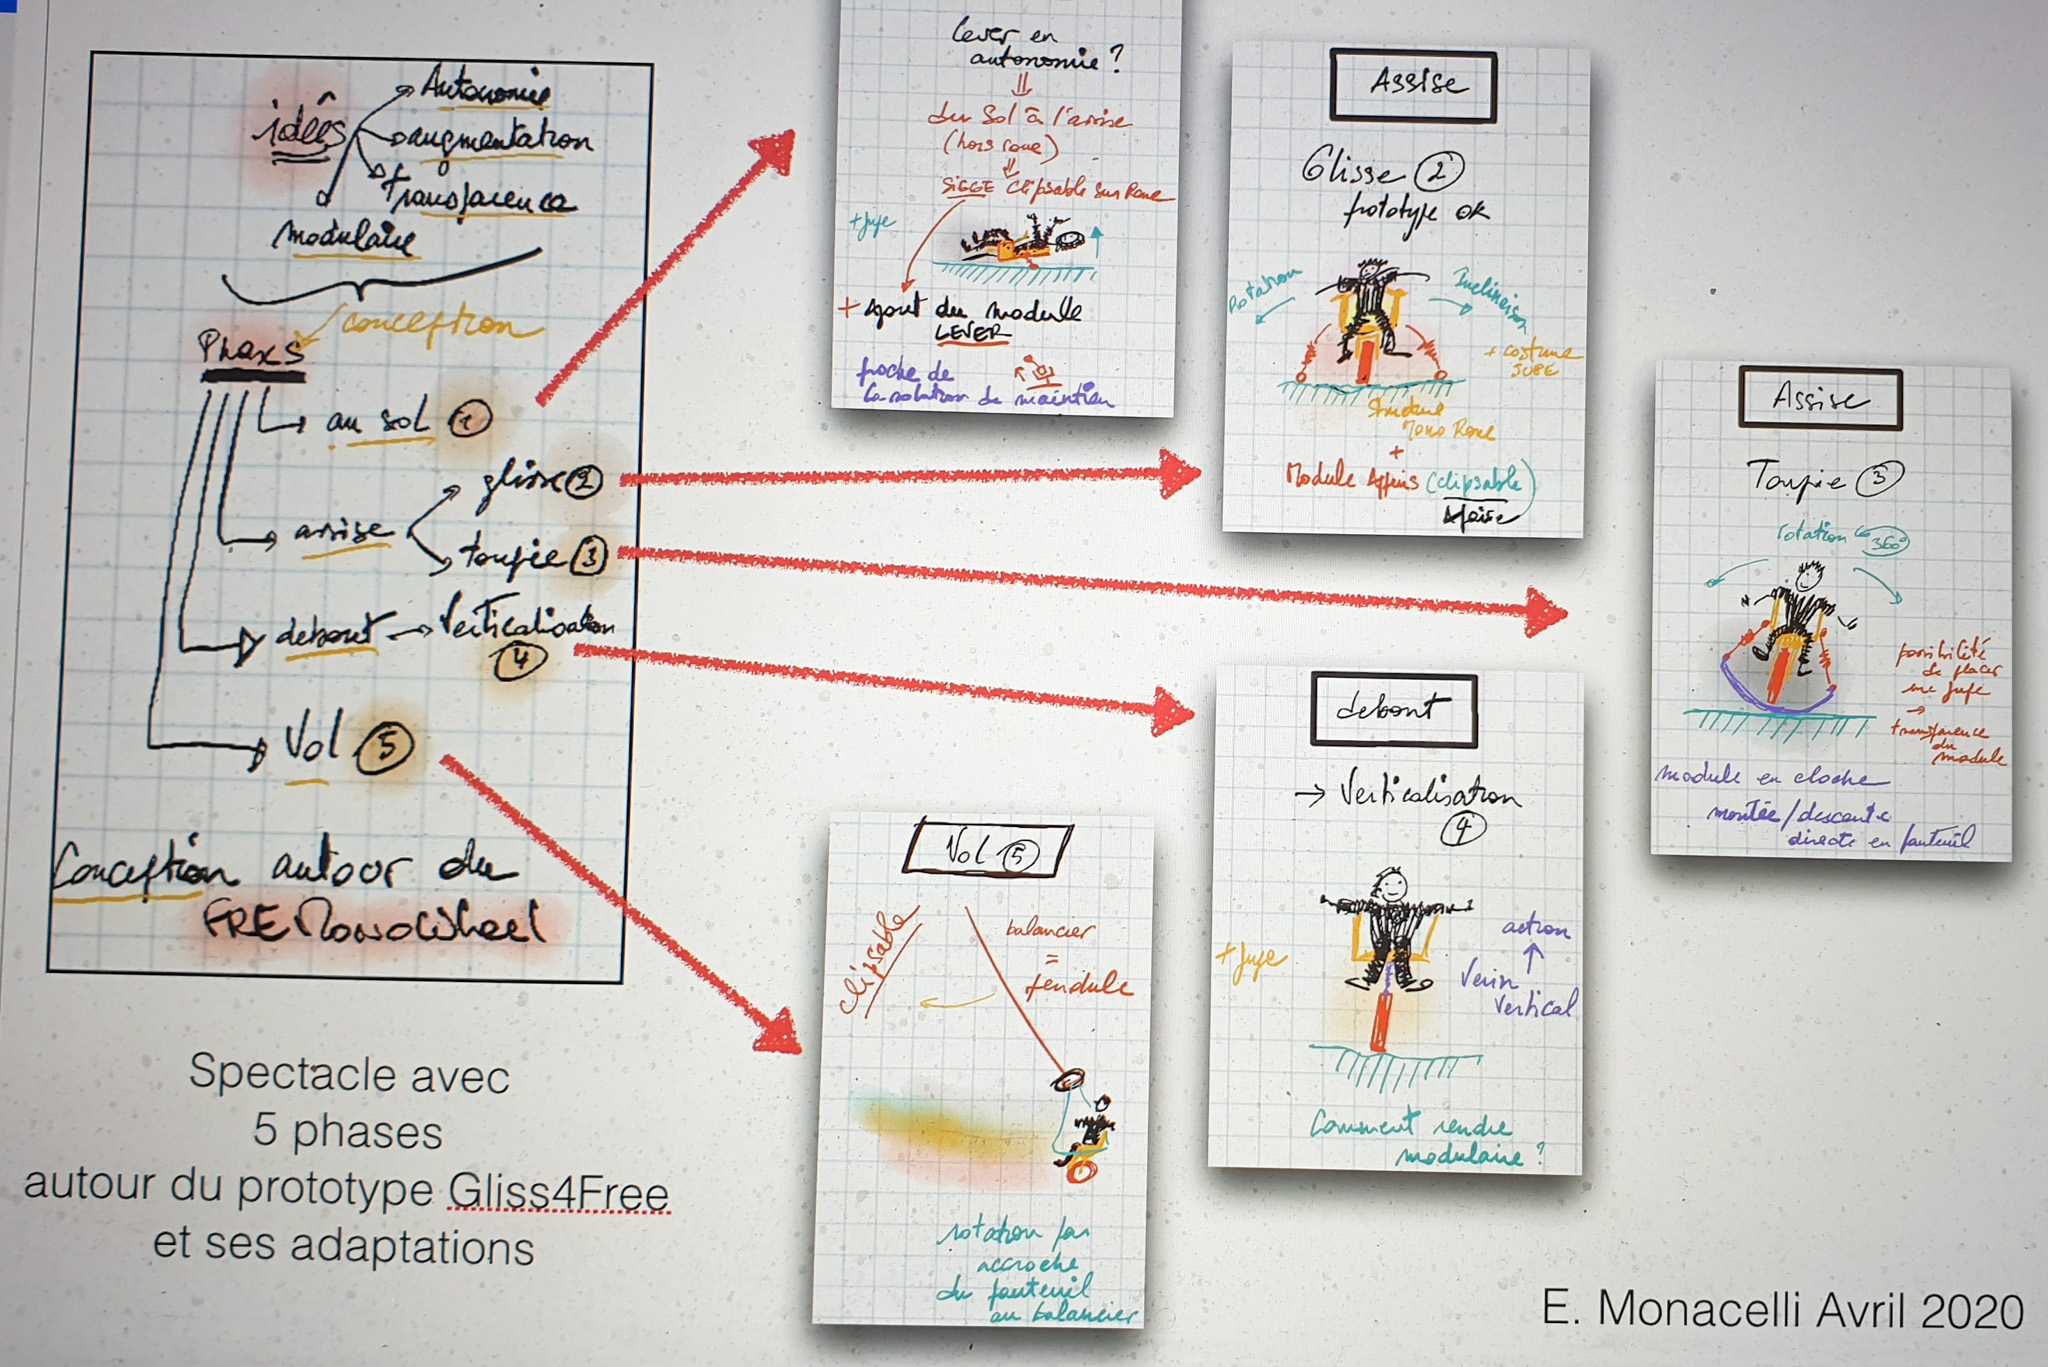 idées
Autonomie
augmentation
transparence
modulaire
conception
Phases
au sol 1
assise
glisse 2
toupie 3
debout → Verticalisation
4
Vol 5
Conception autour du
FREEMonoWheel
Spectacle avec
5 phases
autour du prototype Gliss4Free
et ses adaptations
Lever en
autonomie ?
du Sol à l'assise
(hors roue)
SIEGE Clipsable sur Roue
+ jupe
+ ajout du module
LEVER
proche de
la solution de maintien
Assise
Glisse 2
prototype OK
Rotation
Inclinaison
+ costume
JUPE
Structure
Mono Roue
+
Module Appuis (clipsable)
Assise
Toupie 3
rotation 360°
possibilité
de placer
une jupe
→
transparence
du
module
module en cloche
montée/descente
directe en fauteuil
debout
→ Verticalisation
4
+ jupe
action
Verin
Vertical
Comment rendre
modulaire ?
Vol 5
clipsable
balancier
=
pendule
rotation par
accroche
du fauteuil
au balancier
E. Monacelli Avril 2020